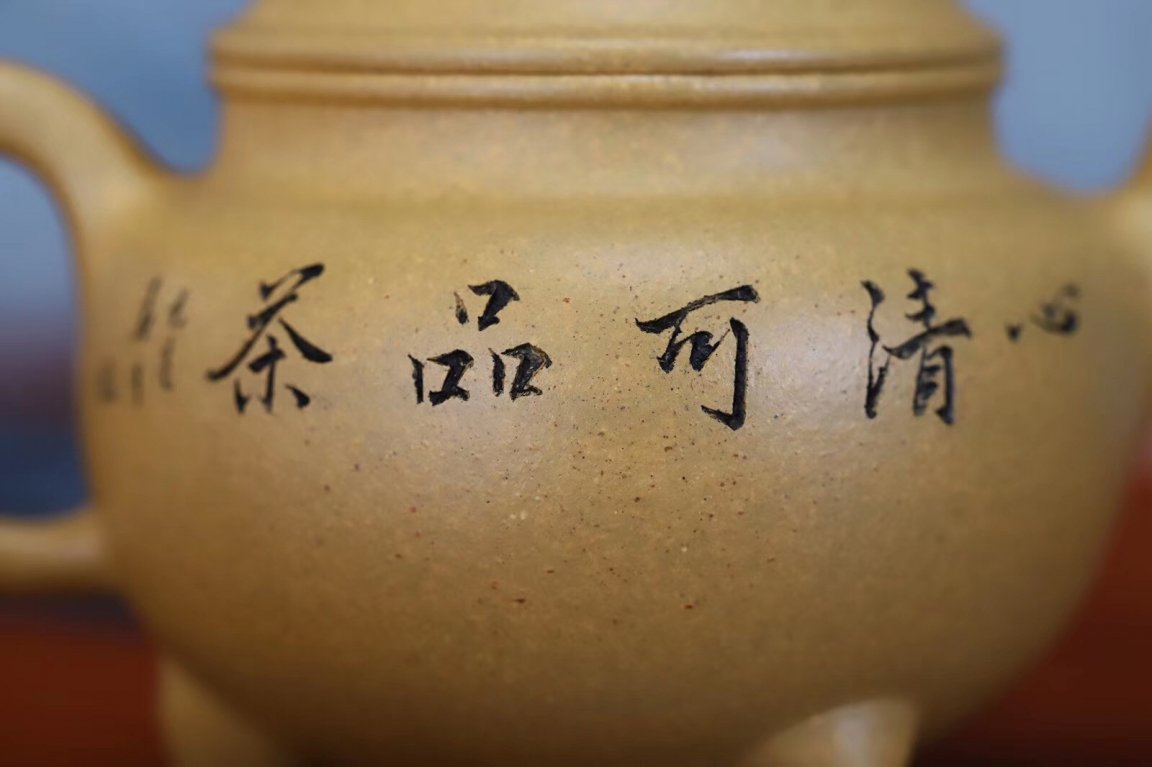 心清可品茶